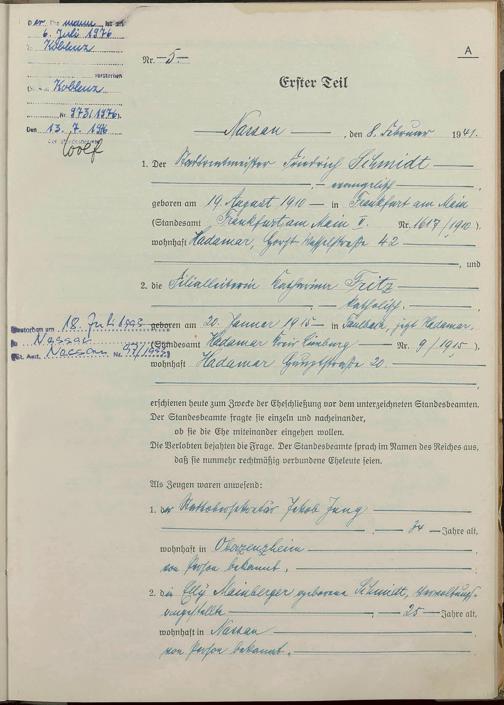 Der Ehemann ist am
6. Juli 1976
in Koblenz
verstorben
Koblenz
Nr. 973/1976).
Den 13. 7. 1976
Der Standesbeamte
Wolf
A
Nr. 5
Erster Teil
Nassau, den 8. Februar 1941.
1. Der Stadtrentmeister Friedrich Schmidt
evangelisch
geboren am 19. August 1910 in Frankfurt am Main
(Standesamt Frankfurt am Main V. Nr. 1617/1910).
wohnhaft Hadamar, Horst Wesselstraße 42
, und
2. die Filialleiterin Katharina Fritz
katholisch.
geboren am 20. Januar 1915 in Faulbach, jetzt Hadamar.
(Standesamt Hadamar Kreis Limburg Nr. 9/1915).
wohnhaft Hadamar Hauptstraße 20.
Gestorben am 18. Juli 1995
in Nassau
(St. Amt. Nassau Nr.
erschienen heute zum Zwecke der Eheschließung vor dem unterzeichneten Standesbeamten.
Der Standesbeamte fragte sie einzeln und nacheinander,
ob sie die Ehe miteinander eingehen wollen.
Die Verlobten bejahten die Frage. Der Standesbeamte sprach im Namen des Reiches aus,
daß sie nunmehr rechtmäßig verbundene Eheleute seien.
Als Zeugen waren anwesend:
1. der Stadtobersekretär Jakob Jung
Jahre alt,
wohnhaft in Oberzeuzheim
von Person bekannt.
2. die Elly Mainberger geborene Schmidt, Verwaltungs-
angestellte 25 Jahre alt,
wohnhaft in Nassau
von Person bekannt.